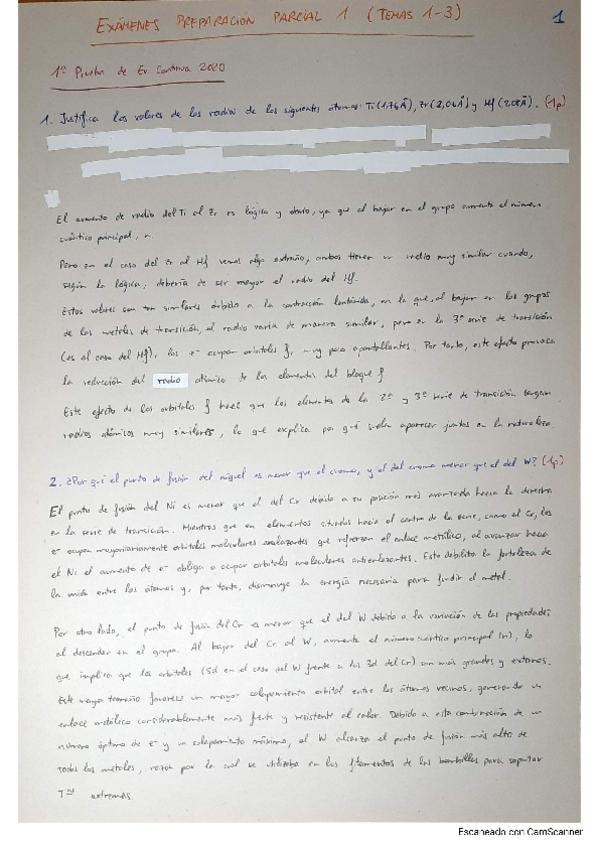 EXÁMENES PREPARACIÓN PARCIAL 1 (TEMAS 1-3)
1
1ª Prueba de Ev. Continua 2020
1. Justifica los valores de los radios de los siguientes átomos: Ti (1,76Å), Zr (2,06Å) y Hf (2,08Å). (1p)
El aumento de radio del Ti al Zr es lógico y obvio, ya que al bajar en el grupo aumenta el número
cuántico principal, n.
Pero en el caso del Zr al Hf vemos algo extraño, ambos tienen un radio muy similar cuando,
según la lógica, debería de ser mayor el radio del Hf.
Estos valores son tan similares debido a la contracción lantánida, en la que, al bajar en los grupos
de los metales de transición, el radio varía de manera similar, pero en la 3ª serie de transición
(es el caso del Hf), los e⁻ ocupan orbitales f, muy poco apantallantes. Por tanto, este efecto provoca
la reducción del radio atómico de los elementos del bloque f
Este efecto de los orbitales f hace que los elementos de la 2ª y 3ª serie de transición tengan
radios atómicos muy similares, lo que explica por qué suelen aparecer juntos en la naturaleza.
2. ¿Por qué el punto de fusión del níquel es menor que el cromo, y el del cromo menor que el del W? (1p)
El punto de fusión del Ni es menor que el del Cr debido a su posición más avanzada hacia la derecha
en la serie de transición. Mientras que en elementos situados hacia el centro de la serie, como el Cr, los
e⁻ ocupan mayoritariamente orbitales moleculares enlazantes que refuerzan el enlace metálico, al avanzar hacia
el Ni el aumento de e⁻ obliga a ocupar orbitales moleculares antienlazantes. Esto debilita la fortaleza de
la unión entre los átomos y, por tanto, disminuye la energía necesaria para fundir el metal.
Por otro lado, el punto de fusión del Cr es menor que el del W debido a la variación de las propiedades
al descender en el grupo. Al bajar del Cr al W, aumenta el número cuántico principal (n), lo
que implica que los orbitales (5d en el caso del W frente a los 3d del Cr) son más grandes y externos.
Este mayor tamaño favorece un mayor solapamiento orbital entre los átomos vecinos, generando un
enlace metálico considerablemente más fuerte y resistente al calor. Debido a esta combinación de un
número óptimo de e⁻ y un solapamiento máximo, el W alcanza el punto de fusión más alto de
todos los metales, razón por la cual se utilizaba en los filamentos de las bombillas para soportar
Tªˢ extremas.
Escaneado con CamScanner